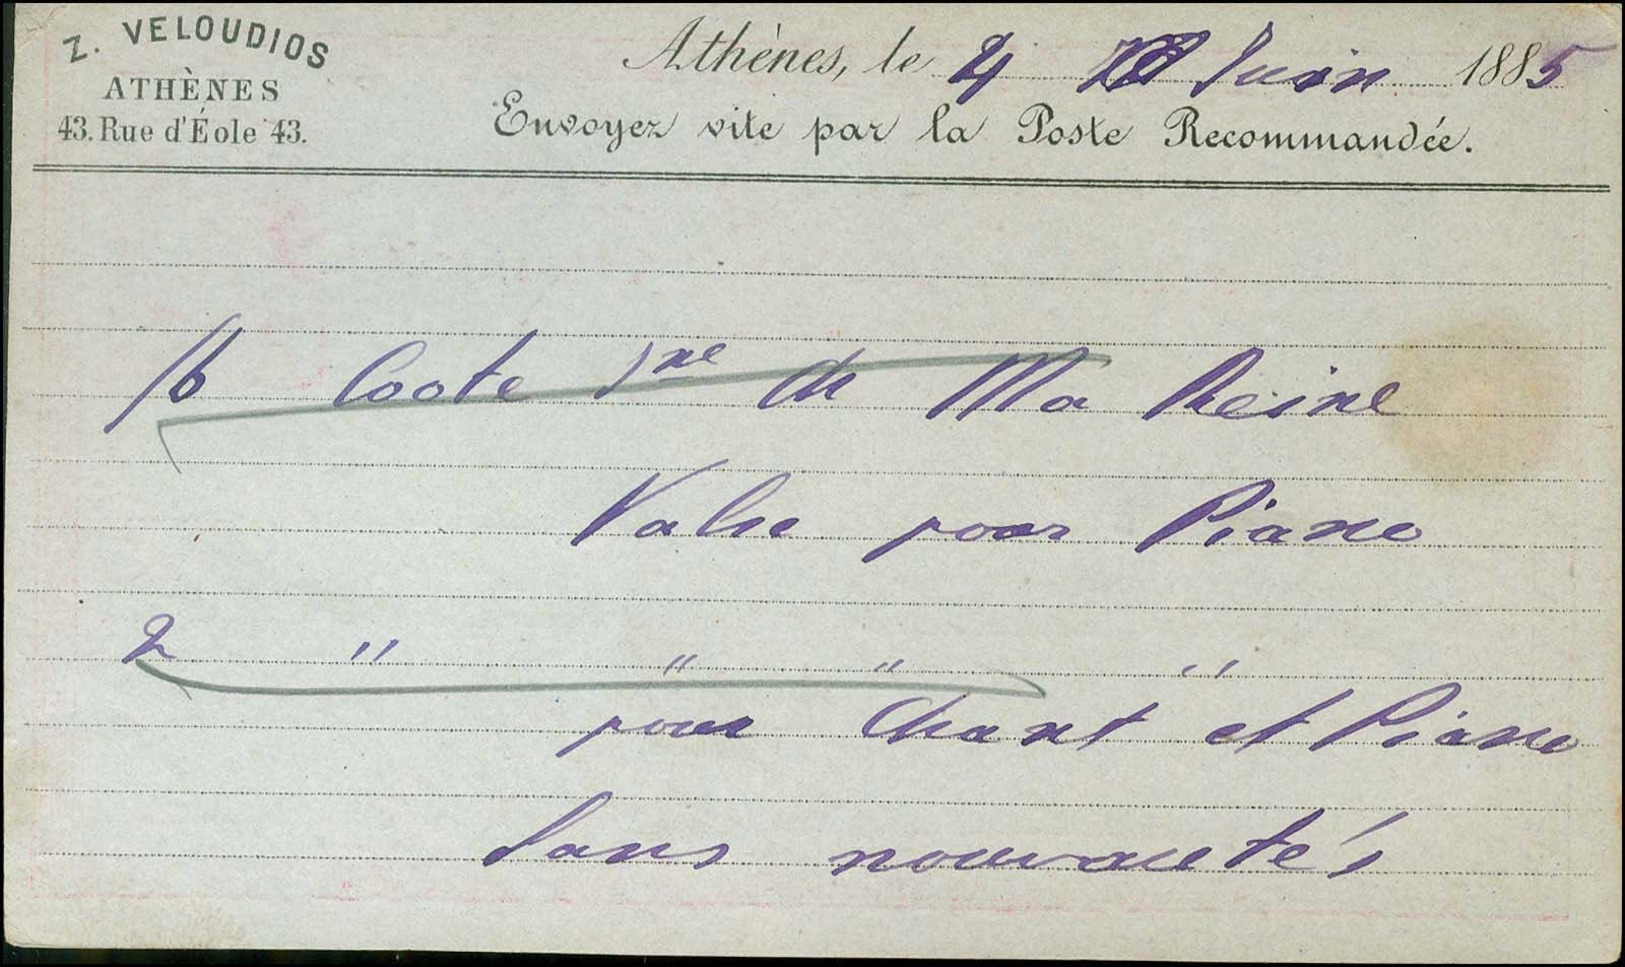 Z. VELOUDIOS
ATHÈNES
43. Rue d'Éole 43.
Athènes, le 4 Juin 1885
Envoyez vite par la Poste Recommandée.
Coote Ma Reine
Valse pour Piano
2 " " " "
pour Chant et Piano
Sans nouveautés